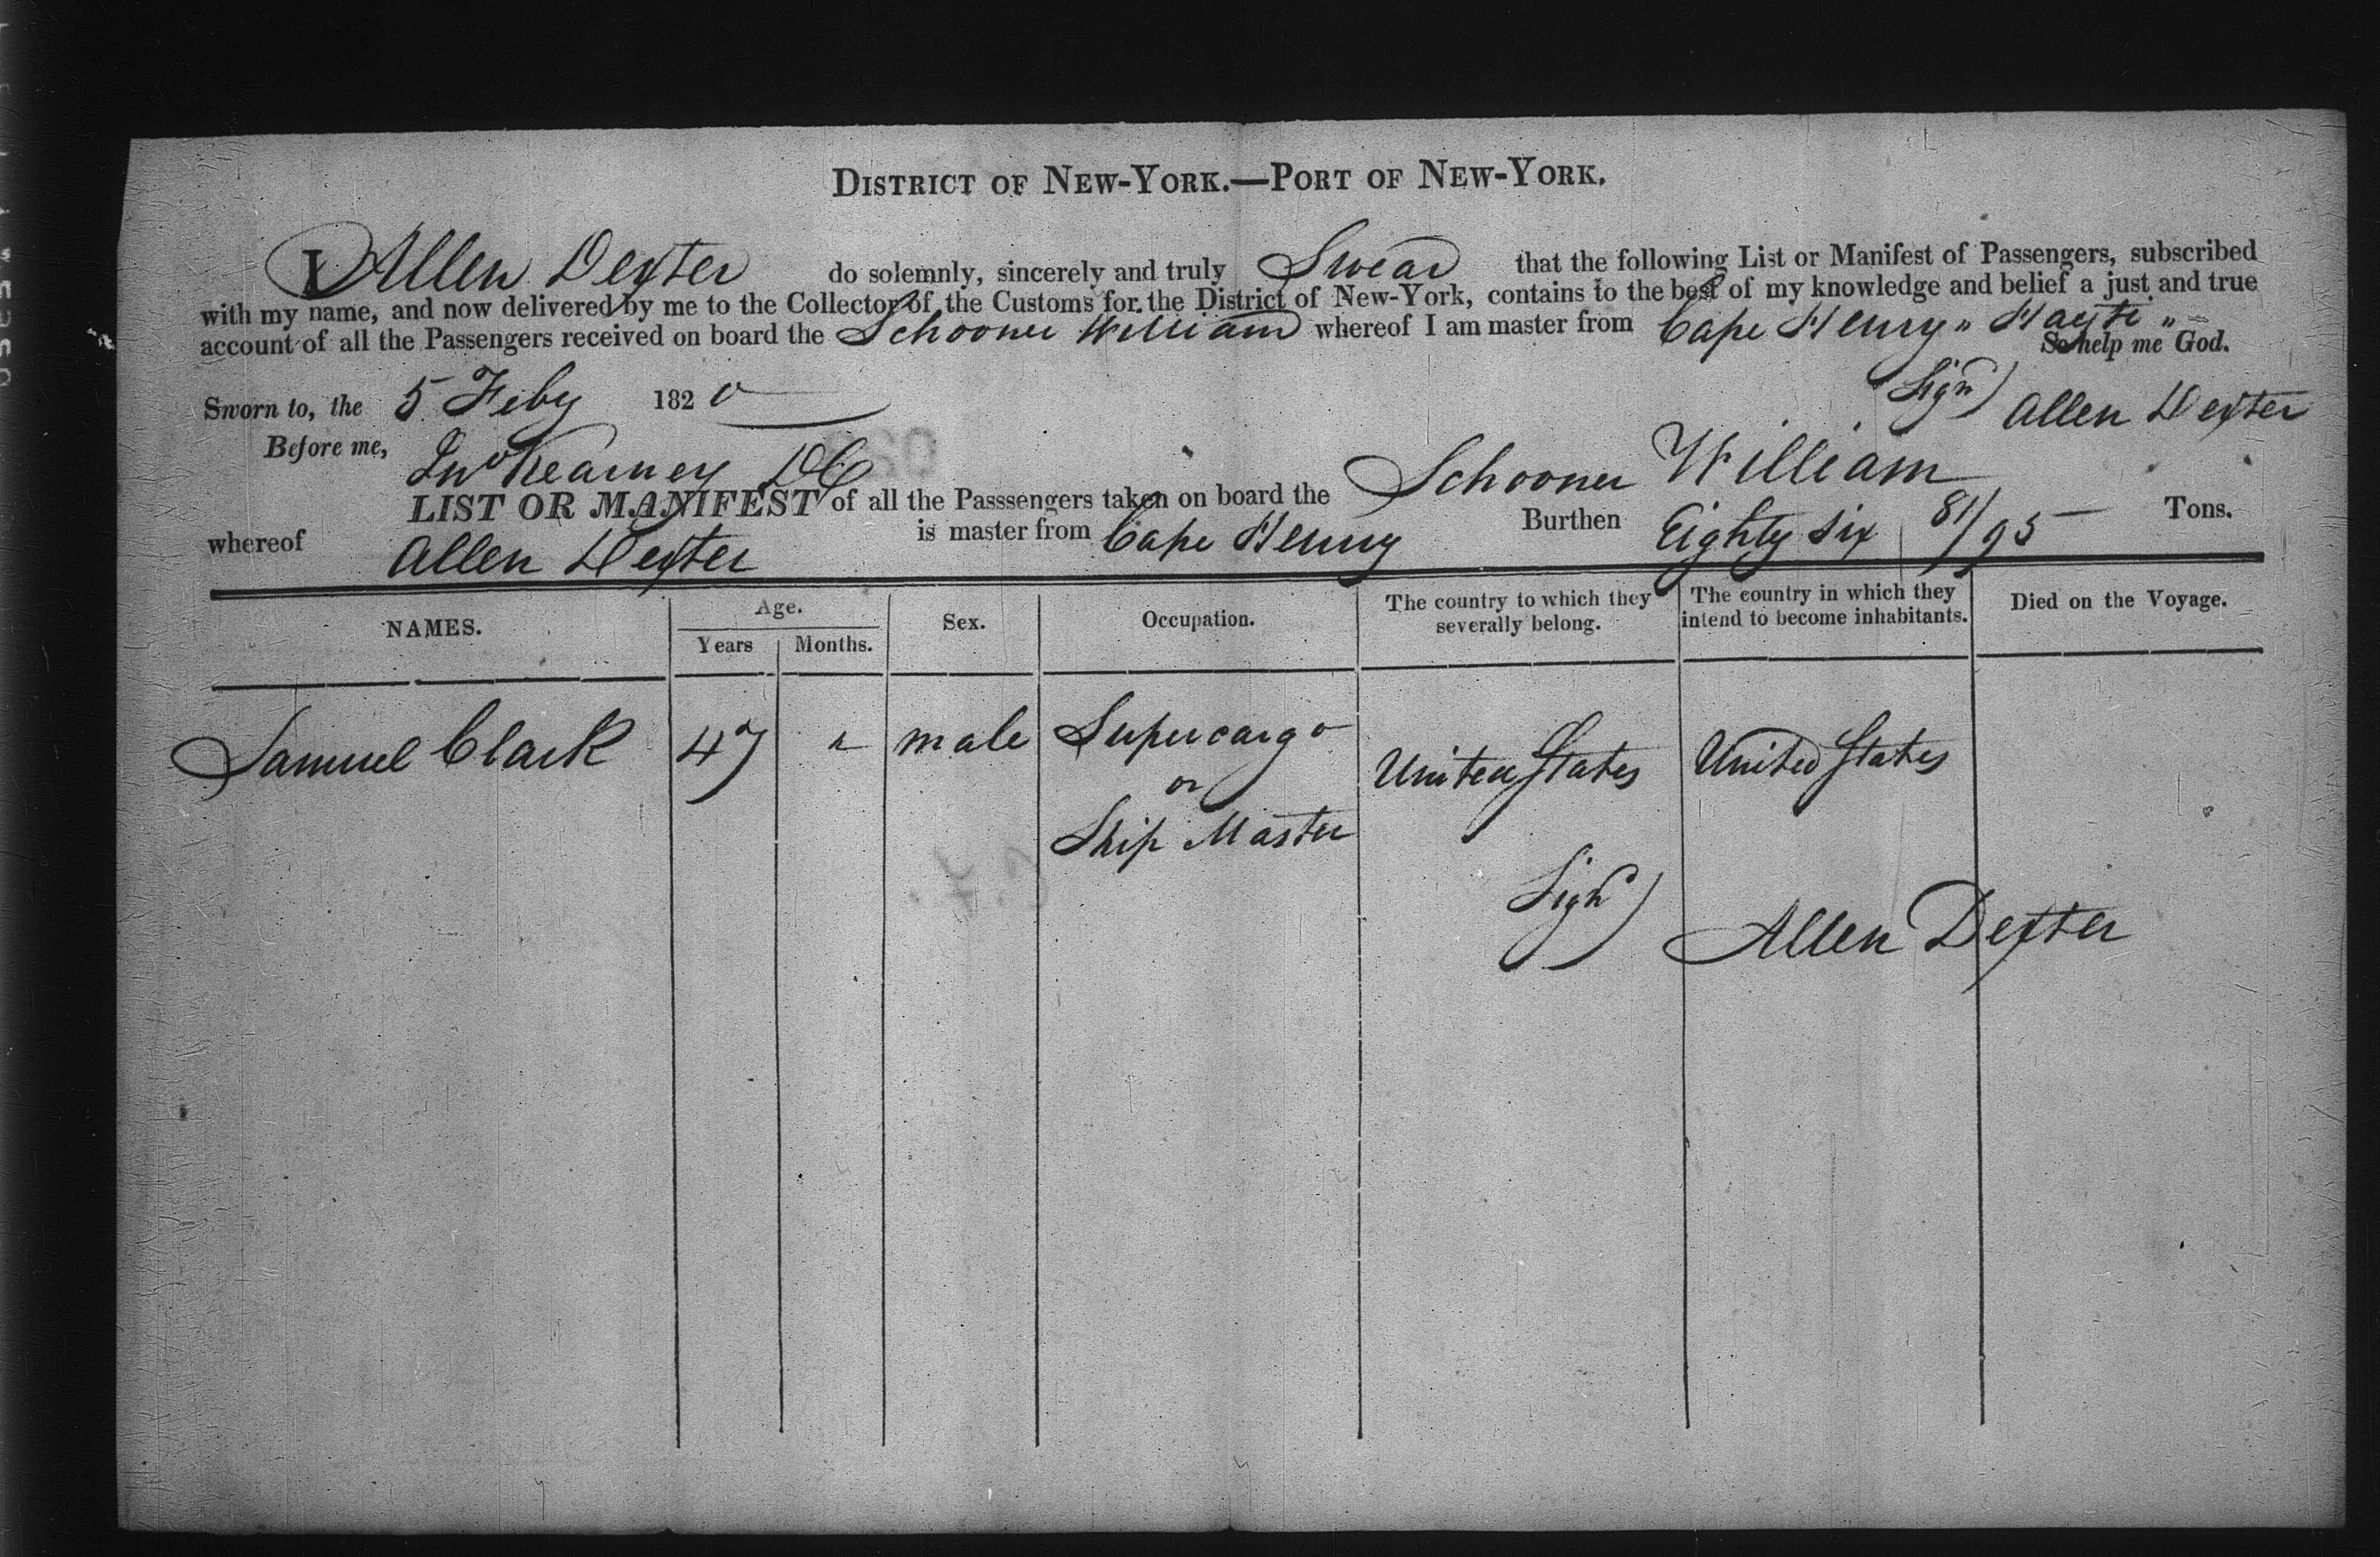 DISTRICT OF NEW-YORK.—PORT OF NEW-YORK.
I Allen Dexter do solemnly, sincerely and truly Swear that the following List or Manifest of Passengers, subscribed
with my name, and now delivered by me to the Collector of the Customs for the District of New-York, contains to the best of my knowledge and belief a just and true
account of all the Passengers received on board the Schooner William whereof I am master from Cape Henry " Hayti "
So help me God.
Sign) Allen Dexter
Sworn to, the 5 Feby 1820
Before me,
Jno Kearney DC
LIST OR MANIFEST of all the Passsengers taken on board the Schooner William
whereof Allen Dexter is master from Cape Henry Burthen Eighty Six 81/95 Tons.
NAMES. Age. Years Months. Sex. Occupation. The country to which they severally belong. The country in which they intend to become inhabitants. Died on the Voyage.
Samuel Clark 47 " male Supercargo United States United States
or
Ship Master
Sign) Allen Dexter